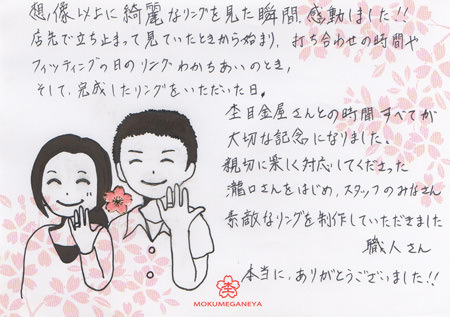 想像以上に綺麗なリングを見た瞬間、感動しました!!
店先で立ち止まって見ていたときから始まり、打ち合わせの時間や
フィッティングの日のリングわかちあいのとき、
そして、完成したリングをいただいた日。
杢目金屋さんとの時間すべてが
大切な記念になりました。
親切に楽しく対応してくださった
瀧口さんをはじめ、スタッフのみなさん
素敵なリングを制作していただきました
職人さん
本当に、ありがとうございました!!
MOKUMEGANEYA